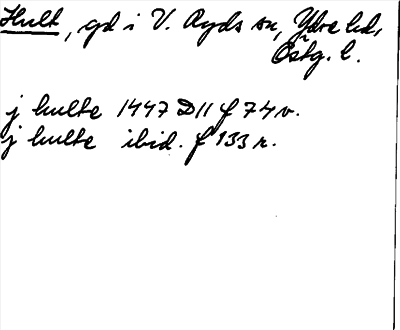 Hult, gd i V. Ryds sn, Ydre hd,
Östg. l.
j hulte 1447 D11 f 74 v.
j hulte ibid. f 133 r.